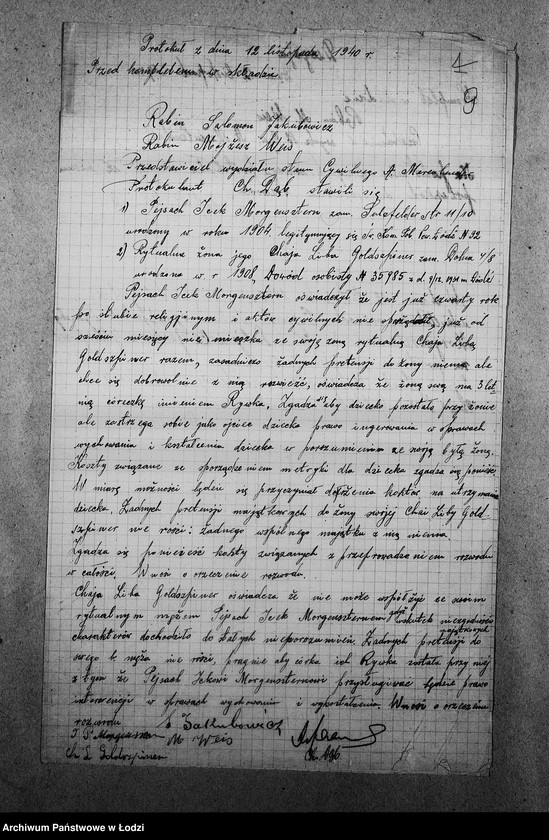 Protokół z dnia 12 listopada 1940 r.
Przed kompletem w składzie
1
9
Rabin Salomon Jakubowicz
Rabin Mojżesz Weis
Przedstawiciel wydziału stanu Cywilnego A.
Protokolant Ch. Dąb. stawili się
1) Pejsach Icek Morgenstern zam. Sulzfelder Str 11/10
urodzony w roku 1904 legitymujący się № 92
2) Rytualna żona jego Chaja Liba Goldszpiner zam. Dolna 4/8
urodzona w r 1908, Dowód osobisty № 35985 z d.
Pejsach Icek Morgensztern oświadczył że jest już czwarty rok
po ślubie religijnym i aktów cywilnych nie już od
sześciu miesięcy nie mieszka ze swoją żoną rytualną Chają Libą
Goldszpiner razem, zasadniczo żadnych pretensji do żony niema ale
chce się dobrowolnie z nią rozwieść, oświadcza że żoną swą ma 3 let
nią córeczkę imieniem Rywka, Zgadza się aby dziecko pozostało przy żonie
ale zastrzega sobie jako ojciec dziecka prawo ingerowania w sprawach
wychowania i kształcenia dziecka w porozumieniu ze swoją byłą żoną.
Koszty związane ze sporządzeniem metryki dla dziecka zgadza się ponieść
W miarę możności będzie się przyczyniał do łożenia kosztów na utrzymanie
dziecka. Żadnych pretensji majątkowych do żony swojej Chai Liby Gold-
szpiner nie rości: żadnego wspólnego majątku z nią niema.
Zgadza się ponieść koszty związanych z przeprowadzeniem rozwodu
w całości. Wnosi o orzeczenie rozwodu.
Chaja Liba Goldszpiner oświadcza że nie może współżyć ze swoim
rytualnym mężem Pejsach Icek Morgenszternem gdyż wskutek niezgodności
charakterów dochodziło do stałych nieporozumień. Żadnych majątkowych pretensji do
swego b. męża nie rości, pragnie aby córka ich Rywka została przy niej
z tym że Pejsach Ickowi Morgenszternowi przysługiwać będzie prawo
interwencji w sprawach wychowania i wykształcenia. Wnosi o orzeczenie
rozwodu
S. Jakubowicz
M Weis
Ch. Dąb
Ch L Goldszpiner
Archiwum Państwowe w Łodzi